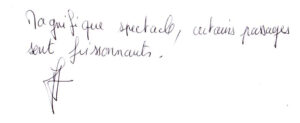 Magnifique spectacle, certains passages
sont frissonnants.